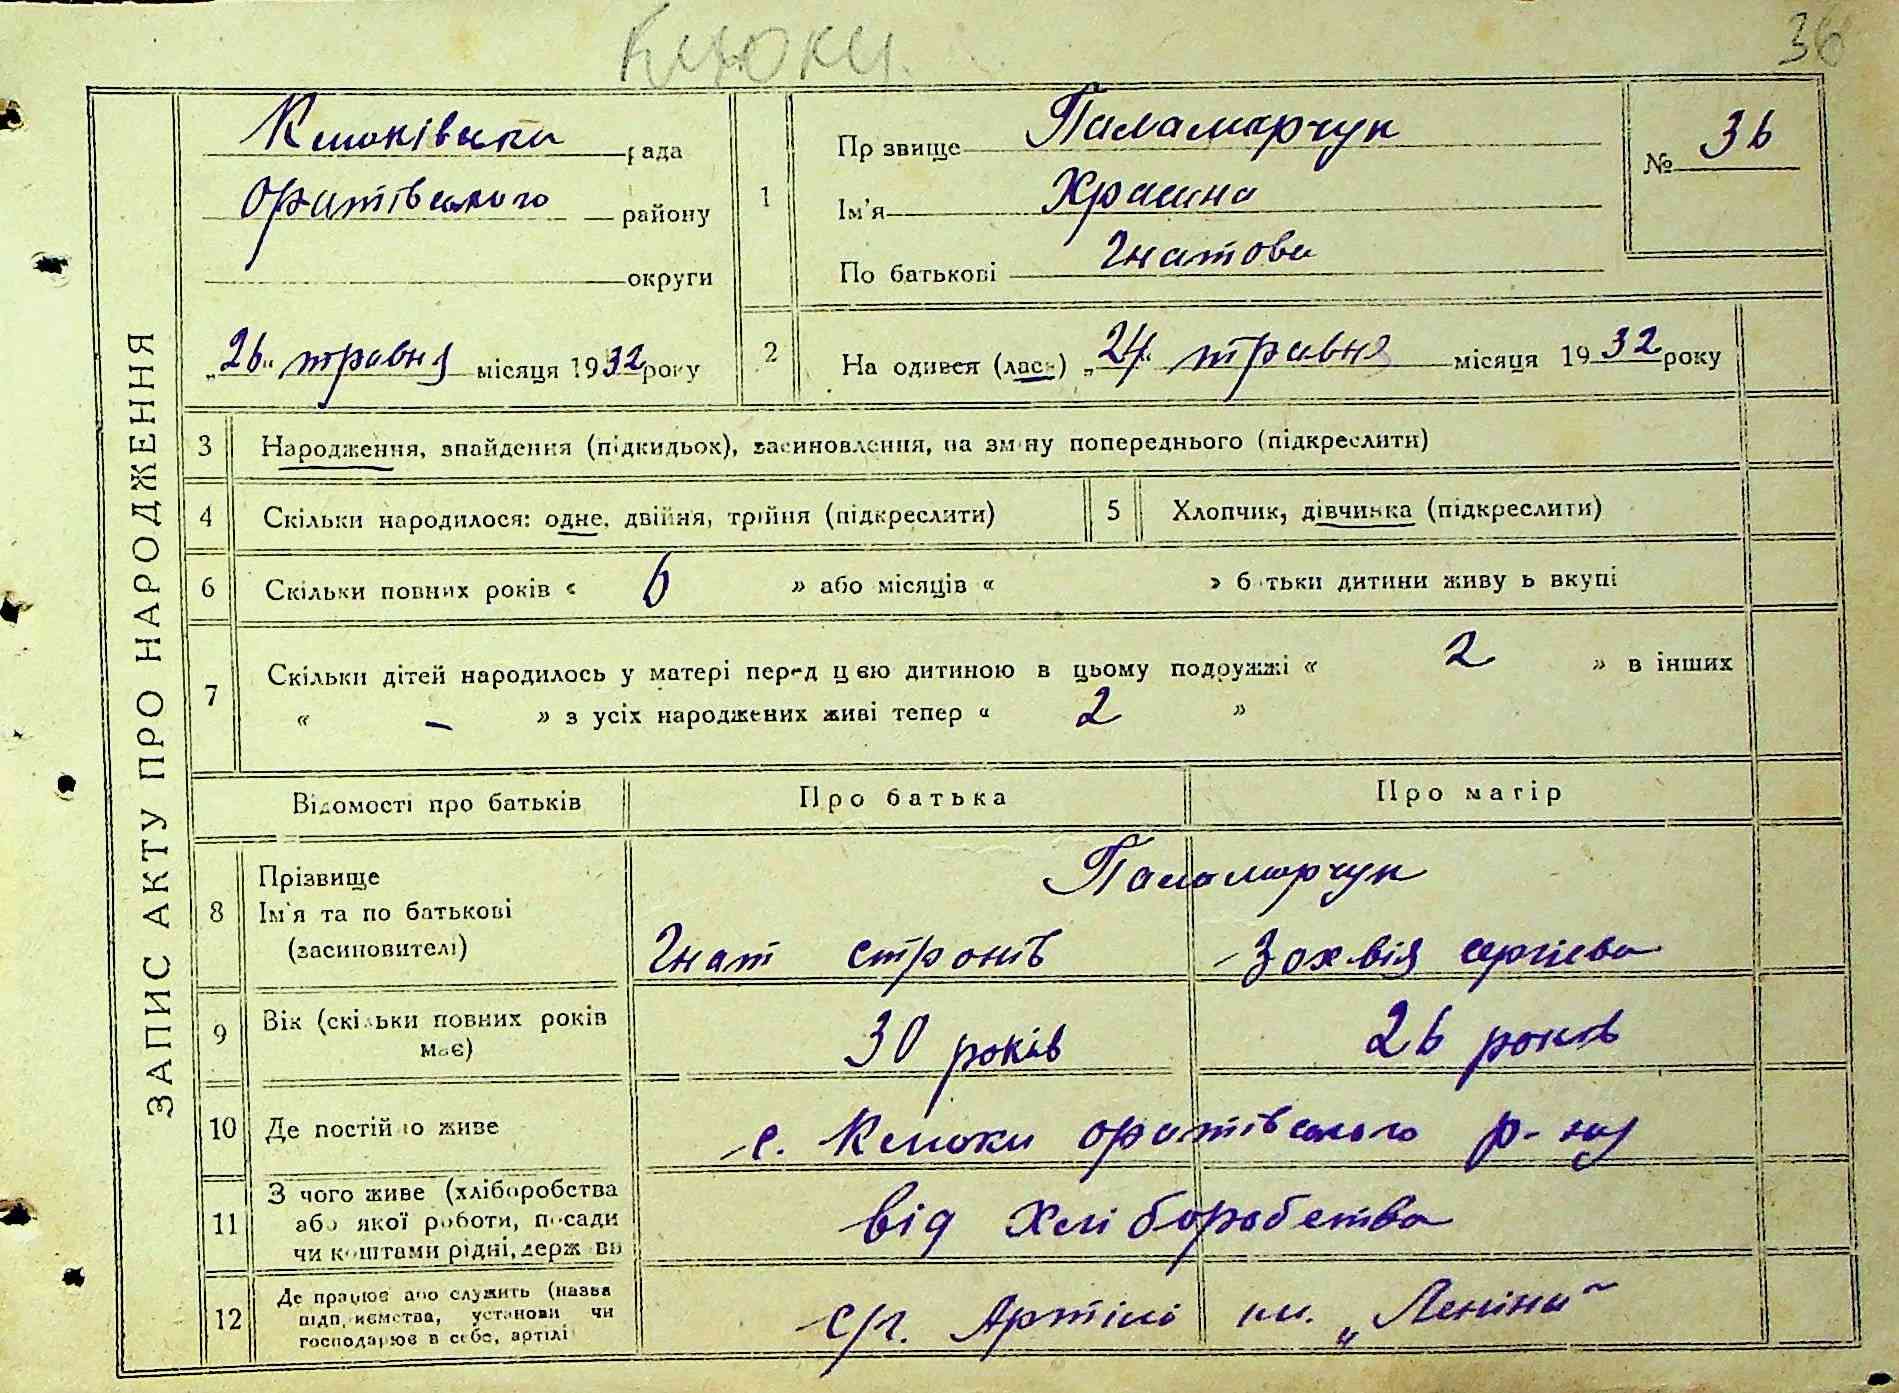 Клюки
36
ЗАПИС АКТУ ПРО НАРОДЖЕННЯ
Клюківська рада
Оратівського району
округи
„26“ травня місяця 1932 року
1
Прізвище Паламарчук
Ім'я Храсина
По батькові Гнатова
№ 36
2
Народився (лася) „24“ травня місяця 1932 року
3 Народження, знайдення (підкидьох), засиновлення, на зміну попереднього (підкреслити)
4 Скільки народилося: одне, двійня, трійня (підкреслити)
5 Хлопчик, дівчинка (підкреслити)
6 Скільки повних років « 6 » або місяців « » батьки дитини живуть вкупі
7 Скільки дітей народилось у матері перед цією дитиною в цьому подружжі « 2 » в інших
« – » з усіх народжених живі тепер « 2 »
Відомості про батьків Про батька Про матір
8 Прізвище
Ім'я та по батькові
(засиновителі)
Паламарчук
Гнат Стронів Зохвія Сергієва
9 Вік (скільки повних років має)
30 років 26 років
10 Де постійно живе
с. Клюки Оратівського р-ну
11 З чого живе (хліборобства
або якої роботи, посади
чи коштами рідні, держави
від хліборобства
12 Де працює або служить (назва
підприємства, установи чи
господарює в себе, артілі
с/г. Артілі ім. „Леніна“